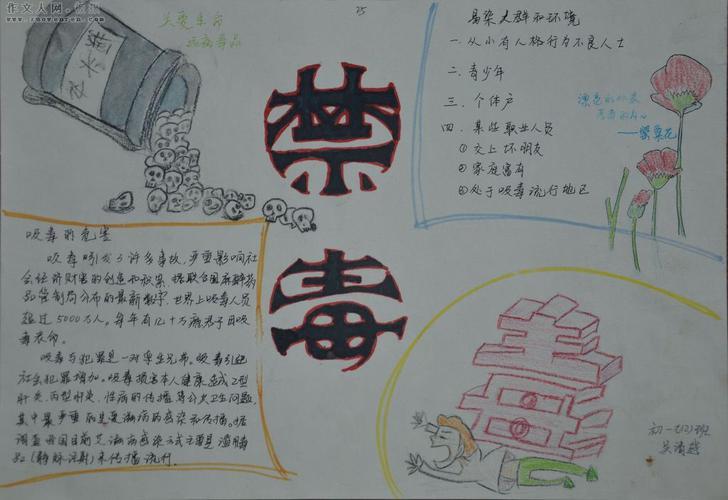 作文人人网·校园
www.zowenren.com
关爱生命
远离毒品
25
禁
毒
易染人群和环境
一.从小有人格行为不良人士
二.青少年
三.个体户
四.某些职业人员
①交上坏朋友
②家庭富有
③处于吸毒流行地区
漂亮的外表
——罂粟花
吸毒的危害
吸毒引发了许多事故,严重影响社
会经济财富的创造和积累.据联合国麻醉药
品管制局公布的最新数字,世界上吸毒人员
超过5000万人.每年有几十万瘾君子因吸
毒丧命.
吸毒与犯罪是一对孪生兄弟.吸毒引起
社会犯罪增加.吸毒损害本人健康,造成乙型
肝炎、丙型肝炎、性病的传播等公共卫生问题,
其中最严重的是艾滋病的感染和传播.据
调查我国目前艾滋病感染方式主要是通过
(静脉注射)来传播流行.
毒
初一7(2)班